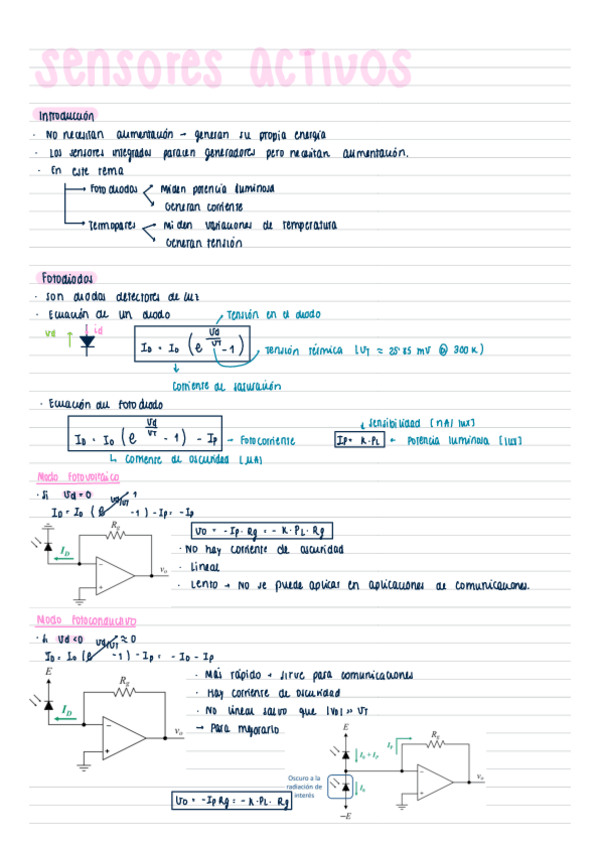 Sensores activos
Introducción
· No necesitan alimentación → generan su propia energía
· Los sensores integrados parecen generadores pero necesitan alimentación.
· En este tema
→ Fotodiodos < Miden potencia luminosa
Generan corriente
→ Termopares < Miden variaciones de temperatura
Generan tensión
Fotodiodos
· Son diodos detectores de luz
· Ecuación de un diodo
Tensión en el diodo
Vd id
ID = I0 (e^(Vd/VT) - 1)
Tensión térmica (VT ≈ 25'85 mV @ 300K)
Corriente de saturación
· Ecuación del fotodiodo
Sensibilidad [nA/lux]
ID = I0 (e^(Vd/VT) - 1) - Ip → Fotocorriente
Ip = K·PL ← Potencia luminosa [lux]
Corriente de oscuridad [μA]
Modo Fotovoltaico
· Si Vd = 0
ID = I0 (e^(Vd/VT) 1 - 1) - Ip = - Ip
Rg
ID
vo
Vo = - Ip · Rg = - K · PL · Rg
· No hay corriente de oscuridad
· Lineal
· Lento → No se puede aplicar en aplicaciones de comunicaciones.
Modo Fotoconductivo
· Si Vd < 0
ID = I0 (e^(Vd/VT) ≈ 0 - 1) - Ip = - I0 - Ip
E
Rg
ID
vo
· Más rápido → sirve para comunicaciones
· Hay corriente de oscuridad
· No lineal salvo que |VD| >> VT
→ Para mejorarlo
E
Rg
I0 + IP
IP
I0
vo
-E
Oscuro a la
radiación de
interés
Vo = - Ip Rg = - K · PL · Rg